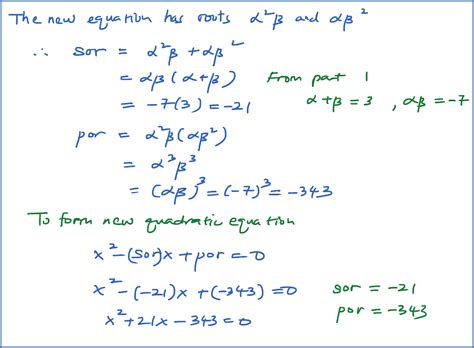 The new equation has roots α²β and αβ²
∴ sor = α²β + αβ²
= αβ(α+β) From part 1
= -7(3) = -21 α+β = 3 , αβ = -7
por = α²β(αβ²)
= α³β³
= (αβ)³ = (-7)³ = -343
To form new quadratic equation
x² - (sor)x + por = 0
x² - (-21)x + (-343) = 0 sor = -21
x² + 21x - 343 = 0 por = -343